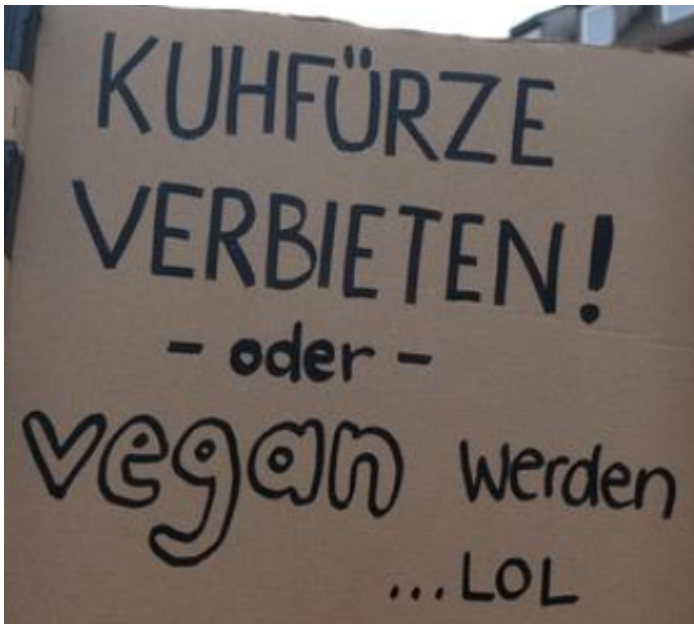 KUHFÜRZE
VERBIETEN!
- oder -
vegan werden
...LOL